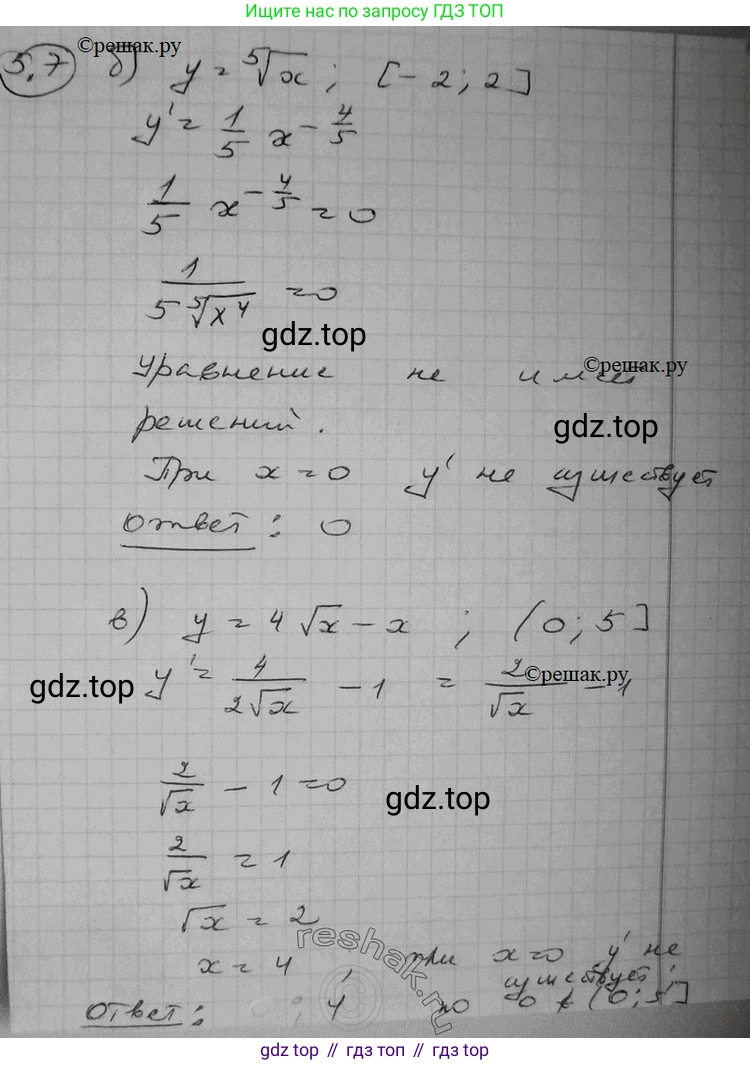 Ищите нас по запросу ГДЗ ТОП
©решак.ру
5.7 б) y = ⁵√x ; [-2; 2]
y' = 1/5 x^(-4/5)
1/5 x^(-4/5) = 0
1/(5 ⁵√x⁴) = 0
gdz.top
Уравнение не имеет
©решак.ру
решений.
gdz.top
При x = 0 y' не существует
Ответ: 0
в) y = 4√x - x ; (0; 5]
y' = 4/(2√x) - 1 = 2/√x - 1
gdz.top
©решак.ру
2/√x - 1 = 0
gdz.top
2/√x = 1
√x = 2
x = 4, при x = 0 y' не
существует,
но 0 ∉ (0; 5]
Ответ: 4
reshak.ru
gdz.top // гдз.топ // gdz.top